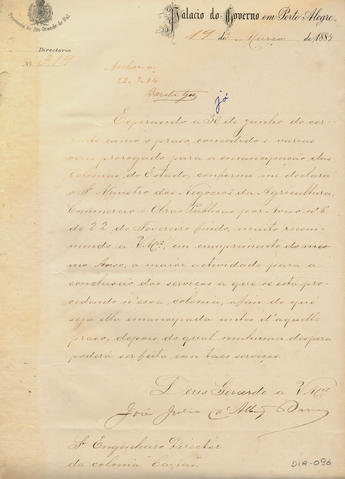 Palacio do Governo em Porto Alegre,
19 de Março de 1884
Directoria
Nº 219
Archive-se
22-3-84
já
Expirando a 30 de Junho do cor-
rente anno o praso, concedido e varias
vezes prorogado para a emancipação das
colonias do Estado, conforme me declara
o Sr. Ministro dos Negocios da Agricultura,
Commercio e Obras Publicas por Aviso nº 6
de 22 de Fevereiro findo, muito recom-
mendo a Vmcê, em cumprimento do mes-
mo Aviso, a maior actividade para a
conclusão dos serviços a que se está pro-
cedendo n'essa colonia, afim de que
seja ella emancipada antes d'aquelle
praso, depois do qual nenhuma despeza
poderá ser feita com taes serviços.
Deus Guarde a Vmcê
José Julio de Albuq. Barros
Sr. Engenheiro Director
da colonia Caxias
DIA-096